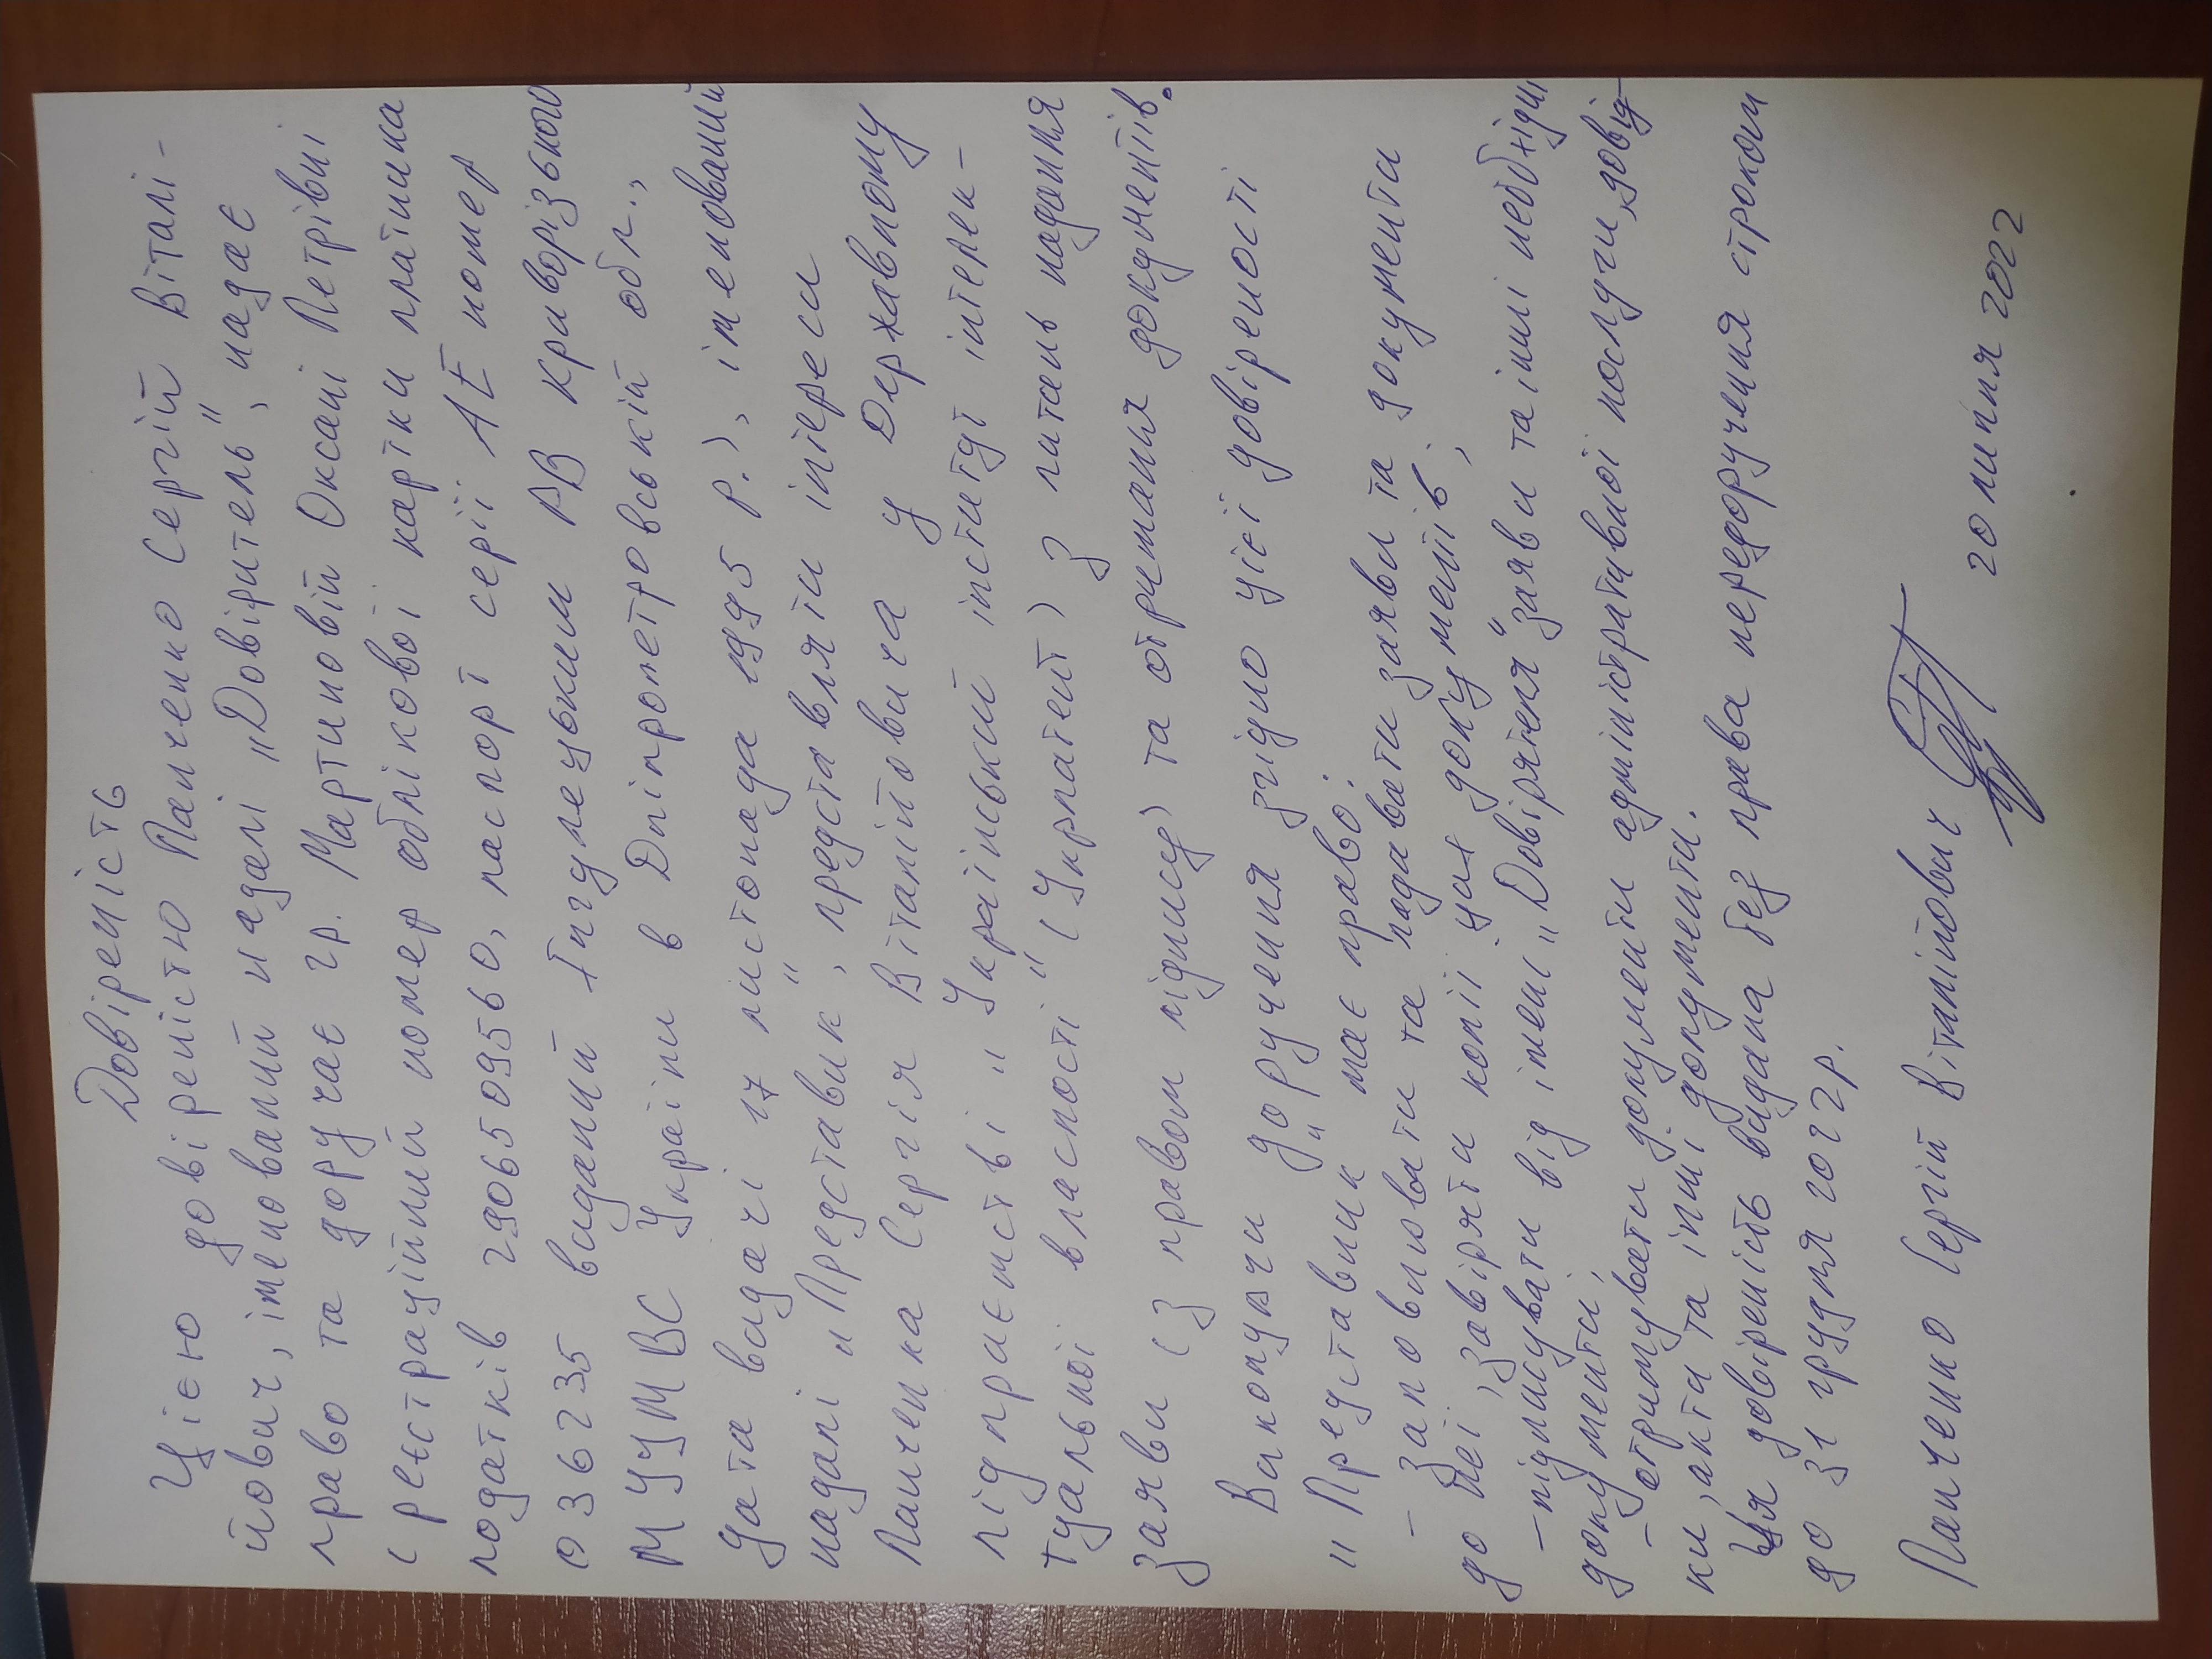 Довіреність
Цією довіреністю Панченко Сергій Віталі-
йович, іменований надалі „Довіритель", надає
право та доручає гр. Мартиновій Оксані Петрівні
(реєстраційний номер облікової картки платника
податків 2906509560, паспорт серії АЕ номер
036235 виданий Інгулецьким РВ Криворізького
МУУМВС України в Дніпропетровській обл.,
дата видачі 17 листопада 1995 р.), іменований
надалі „Представик", представляти інтереси
Панченка Сергія Віталійовича у Державному
підприємстві „Український інститут інтелек-
туальної власності" (Укрпатент) з питань надання
заяви (з правом підпису) та отримання документів.
Виконуючи доручення згідно цієї довіреності
„Представник" має право:
- заповнювати та подавати заяви та документи
до неї, завіряти копії цих документів;
- підписувати від імені „Довірятеля" заяви та інші необхідні
документи;
- отримувати документи адміністративної послуги, довід-
ки, акти та інші документи.
Ця довіреність видана без права передоручення строком
до 31 грудня 2022р.
Панченко Сергій Віталійович
20 липня 2022